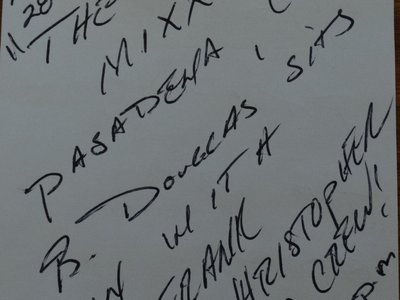 11/28
THE
MIXX
PASADENA,
B. DOUGLAS SITS
IN WITH
FRANK
CHRISTOPHER
CREW!
P.M